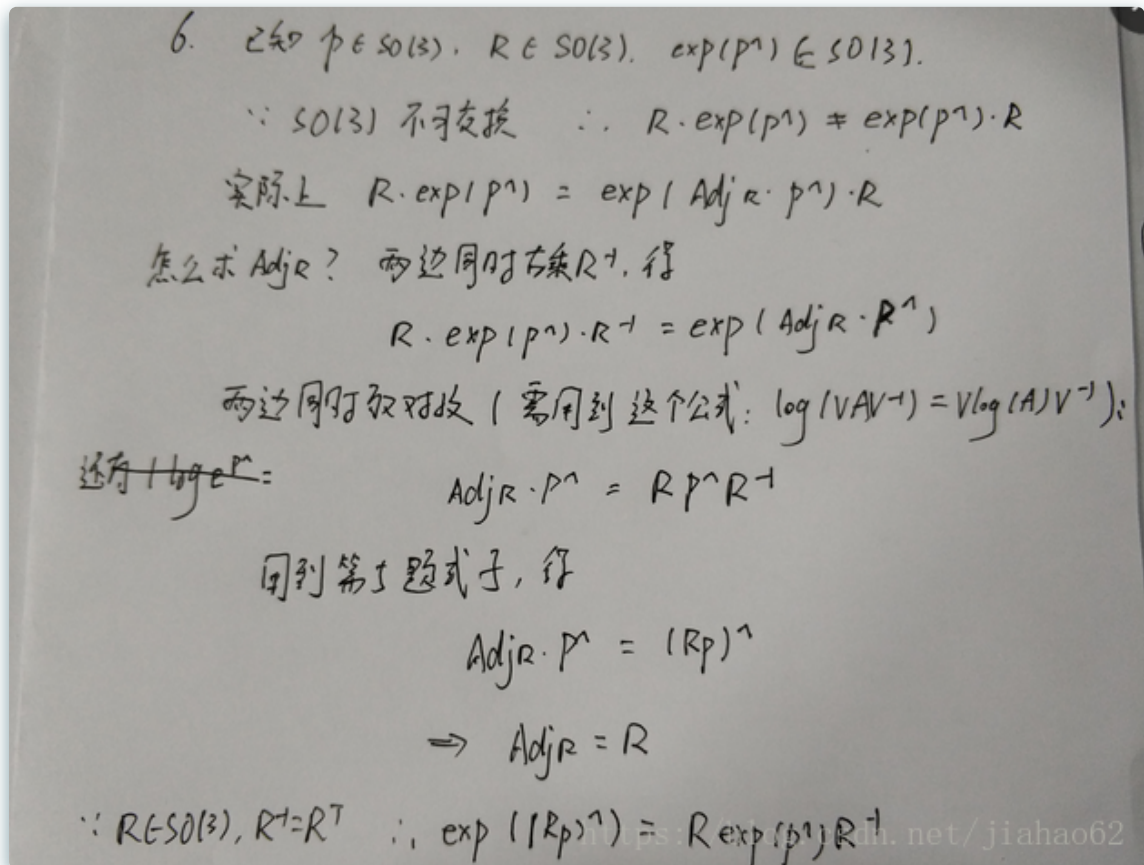 6. 已知 p∈so(3). R∈SO(3). exp(p^)∈SO(3).
∵ SO(3) 不可交换 ∴ R·exp(p^) ≠ exp(p^)·R
实际上 R·exp(p^) = exp(Adj_R·p^)·R
怎么求 Adj_R? 两边同时右乘R⁻¹, 得
R·exp(p^)·R⁻¹ = exp(Adj_R·p^)
两边同时取对数(需用到这个公式: log(VAV⁻¹)=Vlog(A)V⁻¹):
还有 log e^p^=
Adj_R·p^ = R p^ R⁻¹
用到第5题式子, 得
Adj_R·p^ = (Rp)^
⇒ Adj_R = R
∵ R∈SO(3), R⁻¹=Rᵀ ∴ exp((Rp)^) = R exp(p^) R⁻¹
https://blog.csdn.net/jiahao62